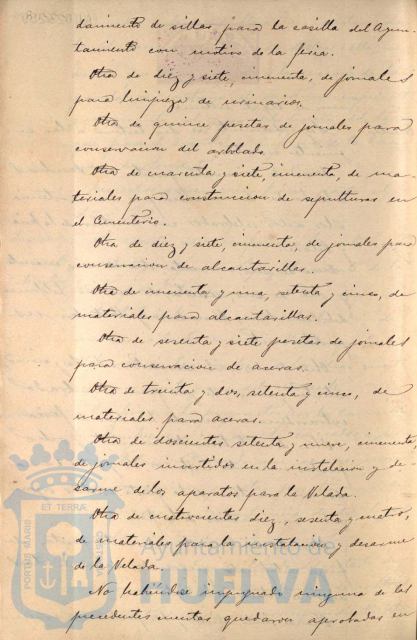 damiento de sillas para la casilla del Ayun-
tamiento con motivo de la feria.
Otra de diez y siete, cincuenta, de jornales
para limpieza de urinarios.
Otra de quince pesetas de jornales para
conservacion del arbolado.
Otra de cuarenta y siete, cincuenta, de ma-
teriales para construccion de sepulturas en
el Cementerio.
Otra de diez y siete, cincuenta, de jornales para
conservacion de alcantarillas.
Otra de cincuenta y una, setenta y cinco, de
materiales para alcantarillas.
Otra de sesenta y siete pesetas de jornales
para conservacion de aceras.
Otra de treinta y dos, setenta y cinco, de
materiales para aceras.
Otra de doscientas setenta y nueve, cincuenta,
de jornales invertidos en la instalacion y de-
sarme de los aparatos para la Velada.
Otra de cuatrocientas diez, sesenta y cuatro,
de materiales para la instalacion y desarme
de la Velada.
No habiéndose impugnado ninguna de las
precedentes cuentas quedaron aprobadas en
PORTUS MARIS
ET TERRA
Ayuntamiento de
HUELVA